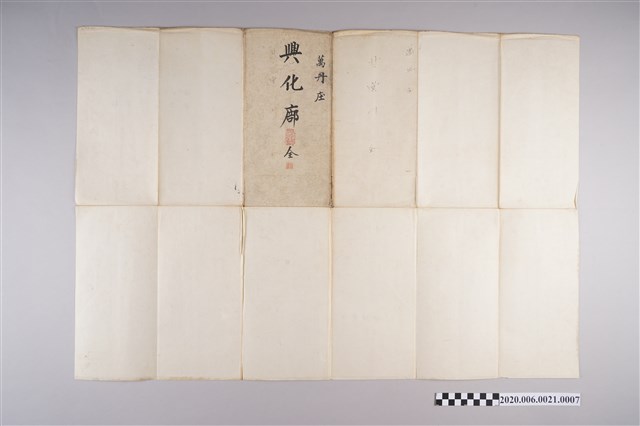 萬丹庄
興化廊
全
2020.006.0021.0007